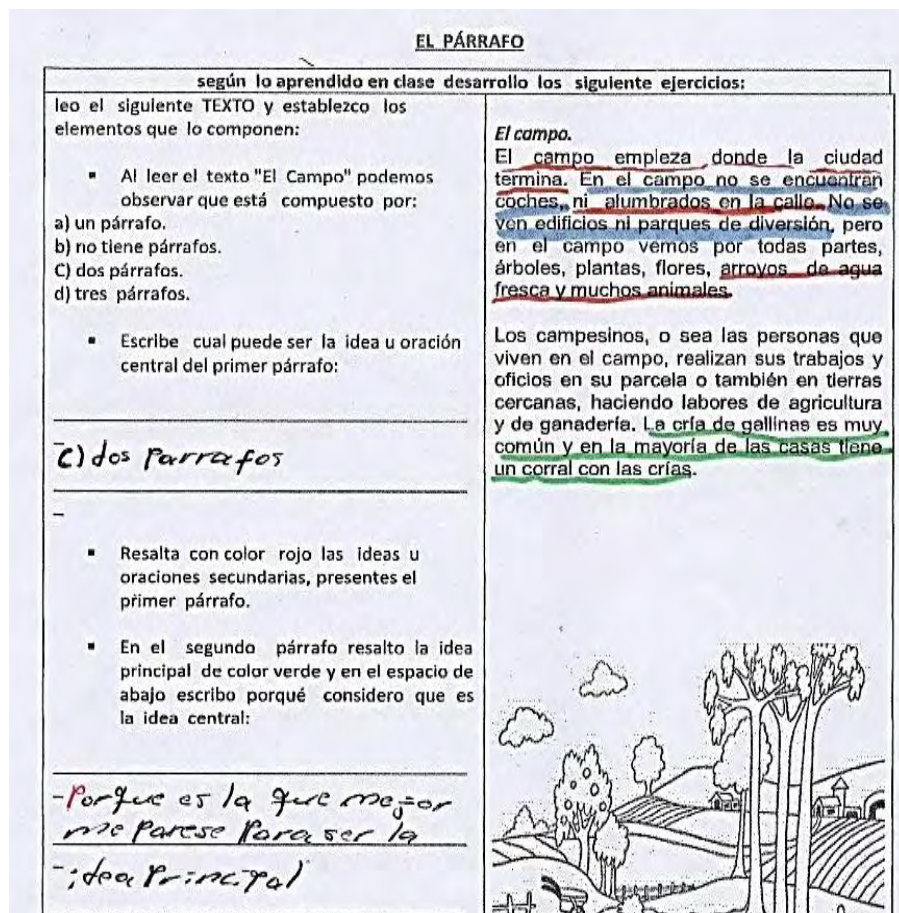 EL PÁRRAFO
según lo aprendido en clase desarrollo los siguiente ejercicios:
leo el siguiente TEXTO y establezco los
elementos que lo componen:
▪ Al leer el texto "El Campo" podemos
observar que está compuesto por:
a) un párrafo.
b) no tiene párrafos.
C) dos párrafos.
d) tres párrafos.
▪ Escribe cual puede ser la idea u oración
central del primer párrafo:
C) dos Parrafos
▪ Resalta con color rojo las ideas u
oraciones secundarias, presentes el
primer párrafo.
▪ En el segundo párrafo resalto la idea
principal de color verde y en el espacio de
abajo escribo porqué considero que es
la idea central:
-Porque es la que mejor
me Parese Para ser la
-idea Principal
El campo.
El campo empieza donde la ciudad
termina. En el campo no se encuentran
coches, ni alumbrados en la calle. No se
ven edificios ni parques de diversión, pero
en el campo vemos por todas partes,
árboles, plantas, flores, arroyos de agua
fresca y muchos animales.
Los campesinos, o sea las personas que
viven en el campo, realizan sus trabajos y
oficios en su parcela o también en tierras
cercanas, haciendo labores de agricultura
y de ganadería. La cría de gallinas es muy
común y en la mayoría de las casas tiene
un corral con las crías.